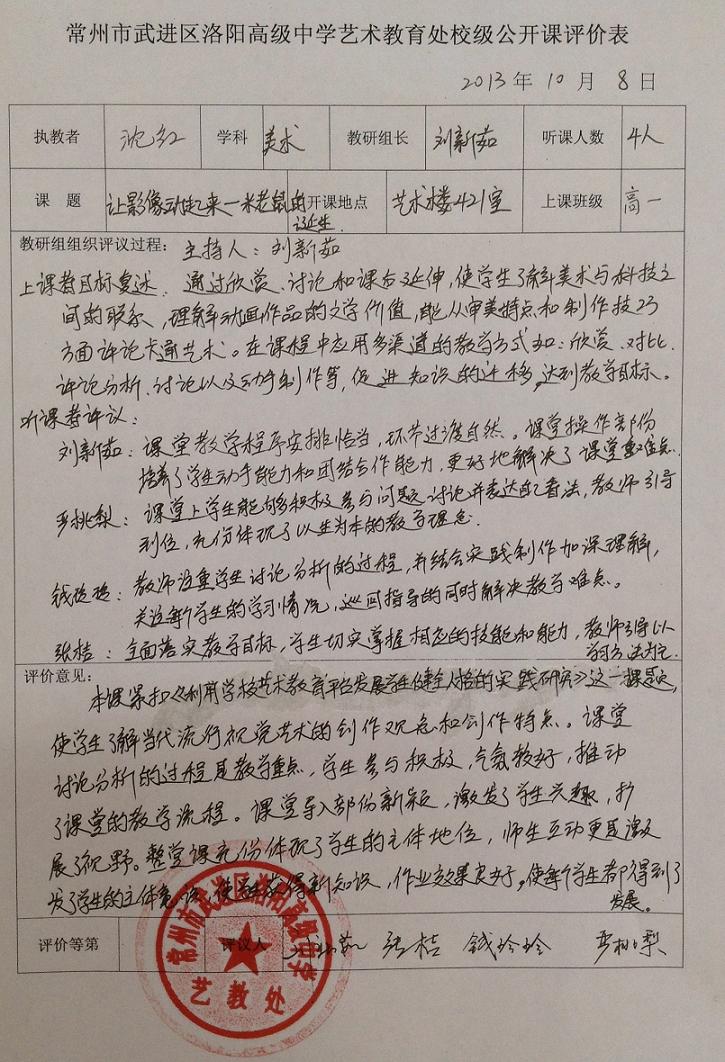 常州市武进区洛阳高级中学艺术教育处校级公开课评价表
2013 年 10 月 8 日
执教者 沈红 学科 美术 教研组长 刘新茹 听课人数 4人
课 题 让影像动起来—米老鼠的诞生 开课地点 艺术楼421室 上课班级 高一
教研组组织评议过程: 主持人:刘新茹
上课者目标复述:通过欣赏、讨论和课后延伸,使学生了解美术与科技之
间的联系,理解动画作品的文学价值,能从审美特点和制作技巧
方面评论卡通艺术。在课程中应用多渠道的教学方式如:欣赏、对比、
评论分析、讨论以及动手制作等,促进知识的迁移,达到教学目标。
听课者评议:
刘新茹:课堂教学程序安排恰当,环节过渡自然。课堂操作部份
培养了学生动手能力和团结合作能力,更好地解决了课堂重难点.
严桃梨:课堂上学生能够积极参与问题讨论并表达自己看法,教师引导
到位,充份体现了以生为本的教学理念.
钱玲玲:教师注重学生讨论分析的过程,并结合实践制作加深理解,
关注每个学生的学习情况,巡回指导的同时解决教学难点。
张桔:全面落实教学目标,学生切实掌握相应的技能和能力,教师引导以
学习方法为主.
评价意见:
本课紧扣《利用学校艺术教育平台发展学生健全人格的实践研究》这一课题,
使学生了解当代流行视觉艺术的创作观念和创作特点。课堂
讨论分析的过程是教学重点,学生参与积极,气氛较好,推动
了课堂的教学流程。课堂导入部份新颖,激发了学生兴趣,扩
展了视野。整堂课充份体现了学生的主体地位,师生互动更是激
发了学生的主体意识,使学生获得新知识,作业效果良好。使每个学生都得到了
发展。
评价等第 评议人 刘新茹 张桔 钱玲玲 严桃梨
常州市武进区洛阳高级中学
艺教处